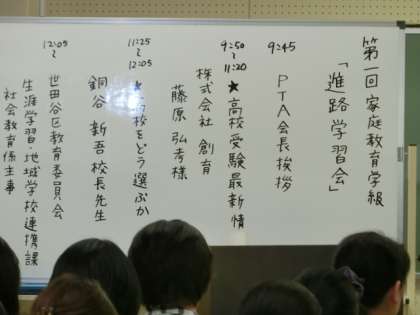 第一回家庭教育学級
「進路学習会」
9:45
PTA会長挨拶
9:50
〜
11:20
★高校受験最新情
株式会社 創育
藤原 弘孝様
11:25
〜
12:05
★高校をどう選ぶか
銅谷 新吾校長先生
12:05
〜
世田谷区教育委員会
生涯学習・地域学校連携課
社会教育係主事